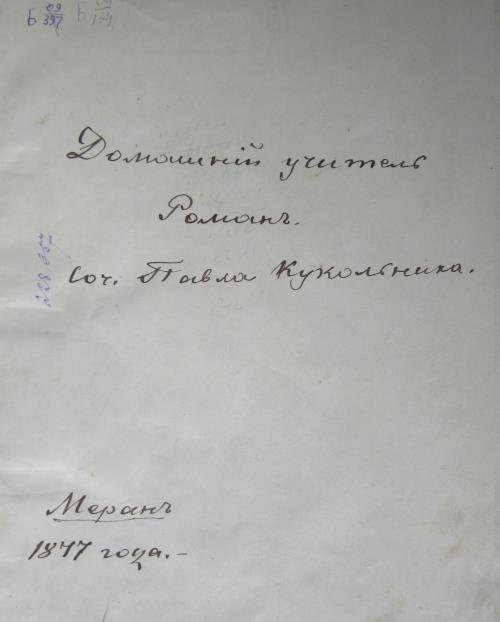 Б 09/397 Б 09/134
Домашній учитель
Романъ.
Соч. Павла Кукольника.
Меранъ
1877 года.-